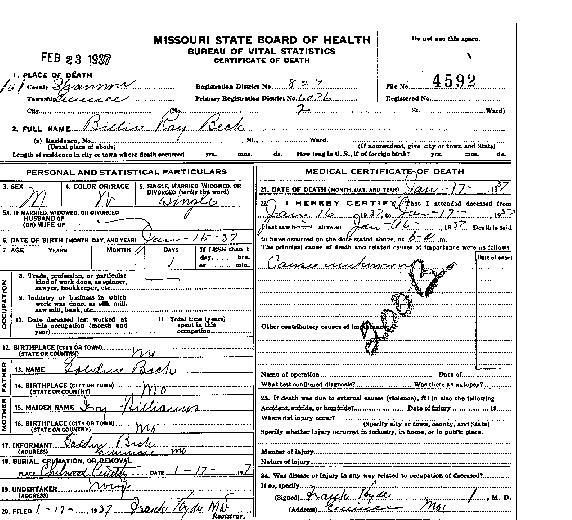 MISSOURI STATE BOARD OF HEALTH
BUREAU OF VITAL STATISTICS
CERTIFICATE OF DEATH
Do not use this space.
FEB 23 1937
1. PLACE OF DEATH
County Shannon
Registration District No. 827
File No. 4592
Township
Primary Registration District No.
Registered No.
City (No. St. Ward)
2. FULL NAME Ray Beck
(a) Residence, No. St. Ward.
(Usual place of abode) (If nonresident, give city or town and State)
Length of residence in city or town where death occurred yrs. mos. ds. How long in U.S., if of foreign birth? yrs. mos. ds.
PERSONAL AND STATISTICAL PARTICULARS
3. SEX M
4. COLOR OR RACE W
5. SINGLE, MARRIED, WIDOWED, OR DIVORCED (write the word) Single
5A. IF MARRIED, WIDOWED, OR DIVORCED
HUSBAND OF
(OR) WIFE OF
6. DATE OF BIRTH (MONTH, DAY, AND YEAR) Jan-16-37
7. AGE YEARS MONTHS DAYS 1 If LESS than 1 day, hrs. or min.
OCCUPATION
8. Trade, profession, or particular kind of work done, as spinner, sawyer, bookkeeper, etc.
9. Industry or business in which work was done, as silk mill, saw mill, bank, etc.
10. Date deceased last worked at this occupation (month and year)
11. Total time (years) spent in this occupation
12. BIRTHPLACE (CITY OR TOWN) (STATE OR COUNTRY) Mo
FATHER
13. NAME Beck
14. BIRTHPLACE (CITY OR TOWN) (STATE OR COUNTRY) Mo
MOTHER
15. MAIDEN NAME Williams
16. BIRTHPLACE (CITY OR TOWN) (STATE OR COUNTRY) Mo
17. INFORMANT Beck
(ADDRESS) Mo
18. BURIAL, CREMATION, OR REMOVAL
PLACE DATE 1-17-1937
19. UNDERTAKER
(ADDRESS)
20. FILED 1-17-1937 Frank Hyde MD
Registrar.
MEDICAL CERTIFICATE OF DEATH
21. DATE OF DEATH (MONTH, DAY, AND YEAR) Jan-17-1937
22. I HEREBY CERTIFY, That I attended deceased from
Jan 16 1937, to Jan-17- 1937
I last saw h alive on Jan 16 1937 Death is said
to have occurred on the date stated above, at m.
The principal cause of death and related causes of importance were as follows:
Date of onset
Cause unknown
200B
Other contributory causes of importance:
Name of operation Date of
What test confirmed diagnosis? Was there an autopsy?
23. If death was due to external causes (violence), fill in also the following:
Accident, suicide, or homicide? Date of injury 19
Where did injury occur?
(Specify city or town, county, and State)
Specify whether injury occurred in industry, in home, or in public place.
Manner of injury
Nature of injury
24. Was disease or injury in any way related to occupation of deceased?
If so, specify
(Signed) Frank Hyde M. D.
(Address) Mo.